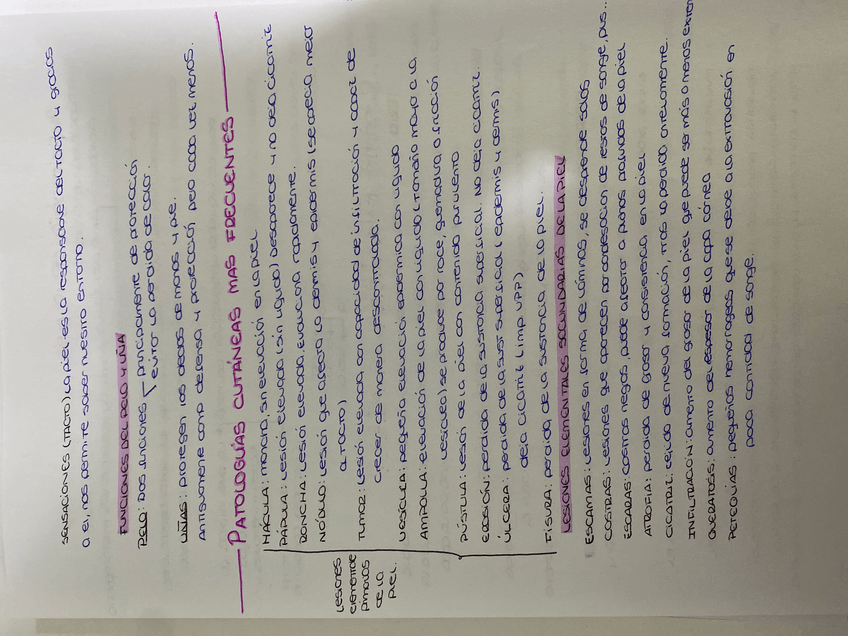 SENSACIONES (TACTO) la piel es la responsable del tacto y gracias
a él, nos permite saber nuestro entorno.
FUNCIONES DEL PELO Y UÑA
PELO: Dos funciones principalmente de protección
evitar la perdida de calor.
UÑAS: protegen los dedos de manos y pie.
Antiguamente como defensa y protección, pero cada vez menos.
PATOLOGUÍAS CUTÁNEAS MAS FRECUENTES
MÁCULA: mancha, sin elevación en la piel
PÁPULA: Lesión elevada (sin liquido) Desaparece y no deja cicatriz
RONCHA: Lesión elevada, evoluciona rapidamente.
NÓDULO: Lesión que afecta la dermis y epidermis (se aprecia mejor
al tacto)
TUMOR: Lesión elevada con capacidad de infiltración y capaz de
crecer de manera descontrolada.
VESÍCULA: pequeña elevación epidermica con liquido
AMPOLLA: elevación de la piel con liquido (tamaño mayor a la
vesicula) se produce por roce, quemadura o fricción
PÚSTULA: Lesión de la piel con contenido purulento
EROSIÓN: perdida de la sustancia superficial. No deja cicatriz.
ÚLCERA: perdida de la sust superficial (epidermis y dermis)
deja cicatriz (imp UPP)
FISURA: perdida de la sustancia de la piel.
Lesiones
elementales
primarias
de la
piel.
LESIONES ELEMENTALES SECUNDARIAS DE LA PIEL
ESCAMAS: Lesiones en forma de láminas, se desprende solas
COSTRAS: Lesiones que aparecen por condensación de restos de sangre, pus...
ESCARAS: costras negras, puede afectar a planos profundos de la piel
ATROFIA: perdida de grosor y consistencia en la piel
CICATRIZ: tejido de nueva formación, tras la perdida anteriormente.
INFILTRACIÓN: aumento del grosor de la piel que puede ser más o menos exten
QUERATOSIS: aumento del espesor de la capa córnea
PETEQUIAS: pequeñas hemorragias que se debe a la extravasión en
poca cantidad de sangre.